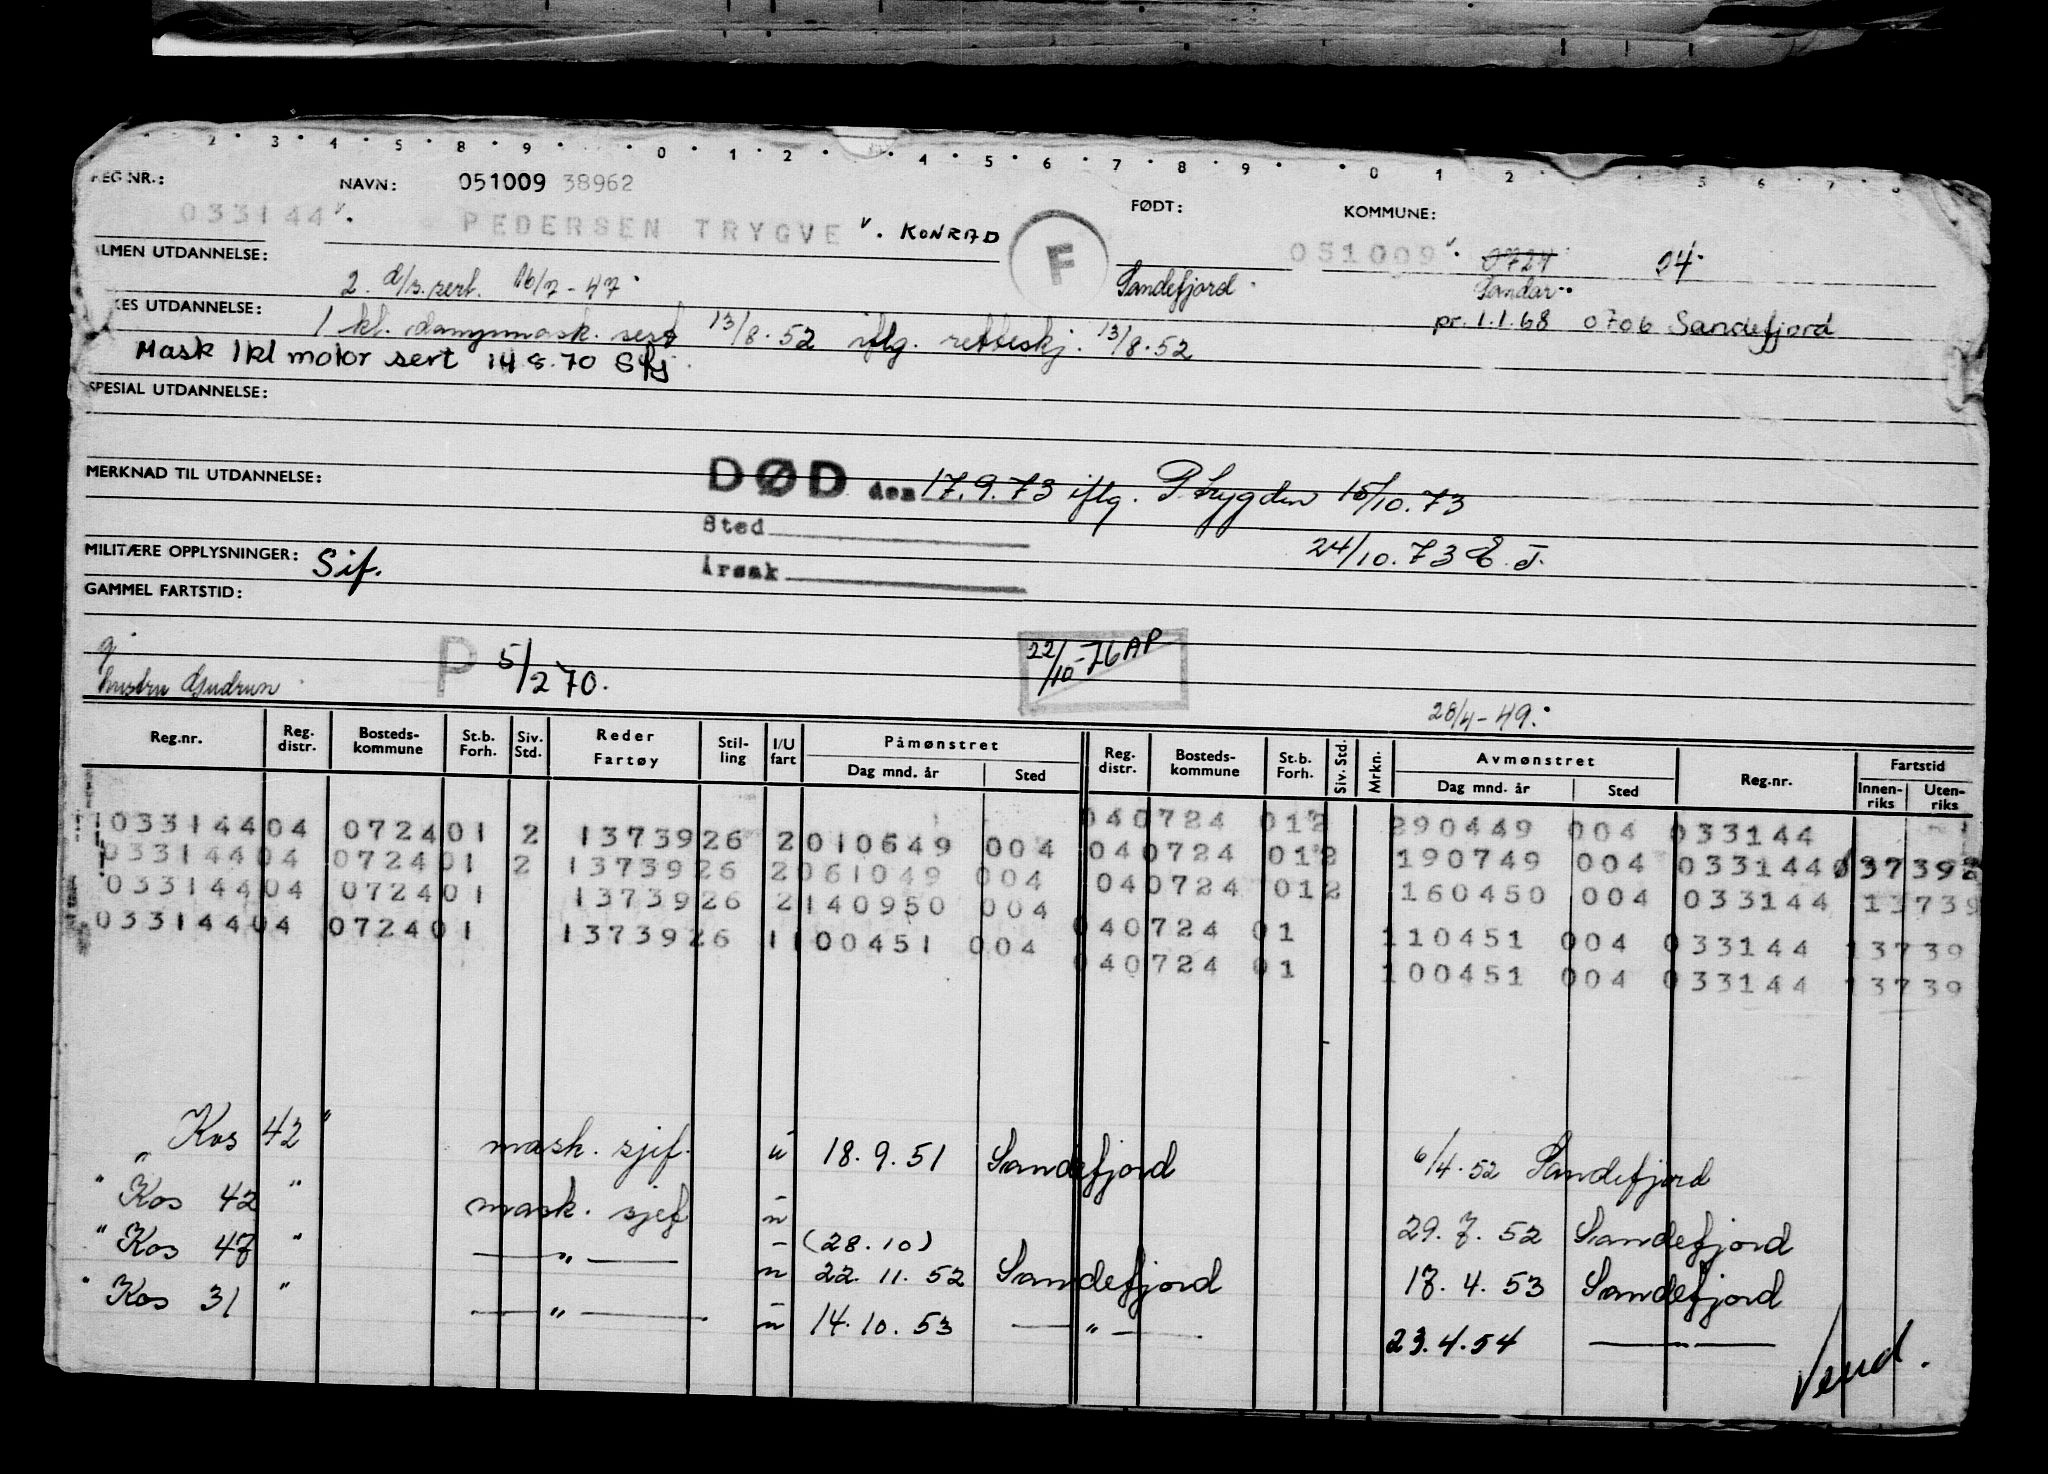 2 3 4 5 8 9 0 1 2 4 5 6 7 8 9 0 1 2 5 6 7
REG NR.: NAVN: 051009 38962 FØDT: KOMMUNE:
033144 v. PEDERSEN TRYGVE v. KONRAD F 051009 v. 0724 04.
ALMEN UTDANNELSE: 2. d/s. sert. 16/7-47 Sandefjord Sandar
KES UTDANNELSE: 1 kl. dampmask. sert 13/8.52 iflg. retteskj. 13/8.52 pr. 1.1.68 0706 Sandefjord
Mask 1kl motor sert 14 8.70 Sfj.
SPESIAL UTDANNELSE:
MERKNAD TIL UTDANNELSE: DØD den 17.9.73 iflg. P. trygden 15/10.73
Sted
MILITÆRE OPPLYSNINGER: Sif. 24/10.73 E. J.
Årsak
GAMMEL FARTSTID:
g P 5/270. 22/10-76 AP
hustru Gudrun
28/4-49.
Reg.nr. Reg. distr. Bosteds-kommune St.b. Forh. Siv. Std. Reder Fartøy Stil-ling I/U fart Påmønstret Reg. distr. Bosteds-kommune St.b. Forh. Siv. Std. Mrkn. Avmønstret Reg.nr. Fartstid
Dag mnd. år Sted Dag mnd. år Sted Innen-riks Uten-riks
040724 012 290449 004 033144
033144 04 0724 01 2 13739 26 2 010649 004 040724 012 190749 004 033144 0 37392
033144 04 0724 01 2 13739 26 2 061049 004 040724 012 160450 004 033144 13739
033144 04 0724 01 13739 26 2 140950 004 040724 01 110451 004 033144 13739
033144 04 0724 01 13739 26 1 100451 004 040724 01 100451 004 033144 13739
" Kos 42 " mask. sjef. u 18.9.51 Sandefjord 6/4.52 Sandefjord
" Kos 42 " mask. sjef u 29.7.52 Sandefjord
" Kos 47 " — " — u (28.10) 22.11.52 Sandefjord 17.4.53 Sandefjord
" Kos 31 " — " — u 14.10.53 — " — 23.4.54 — " —
Vend.